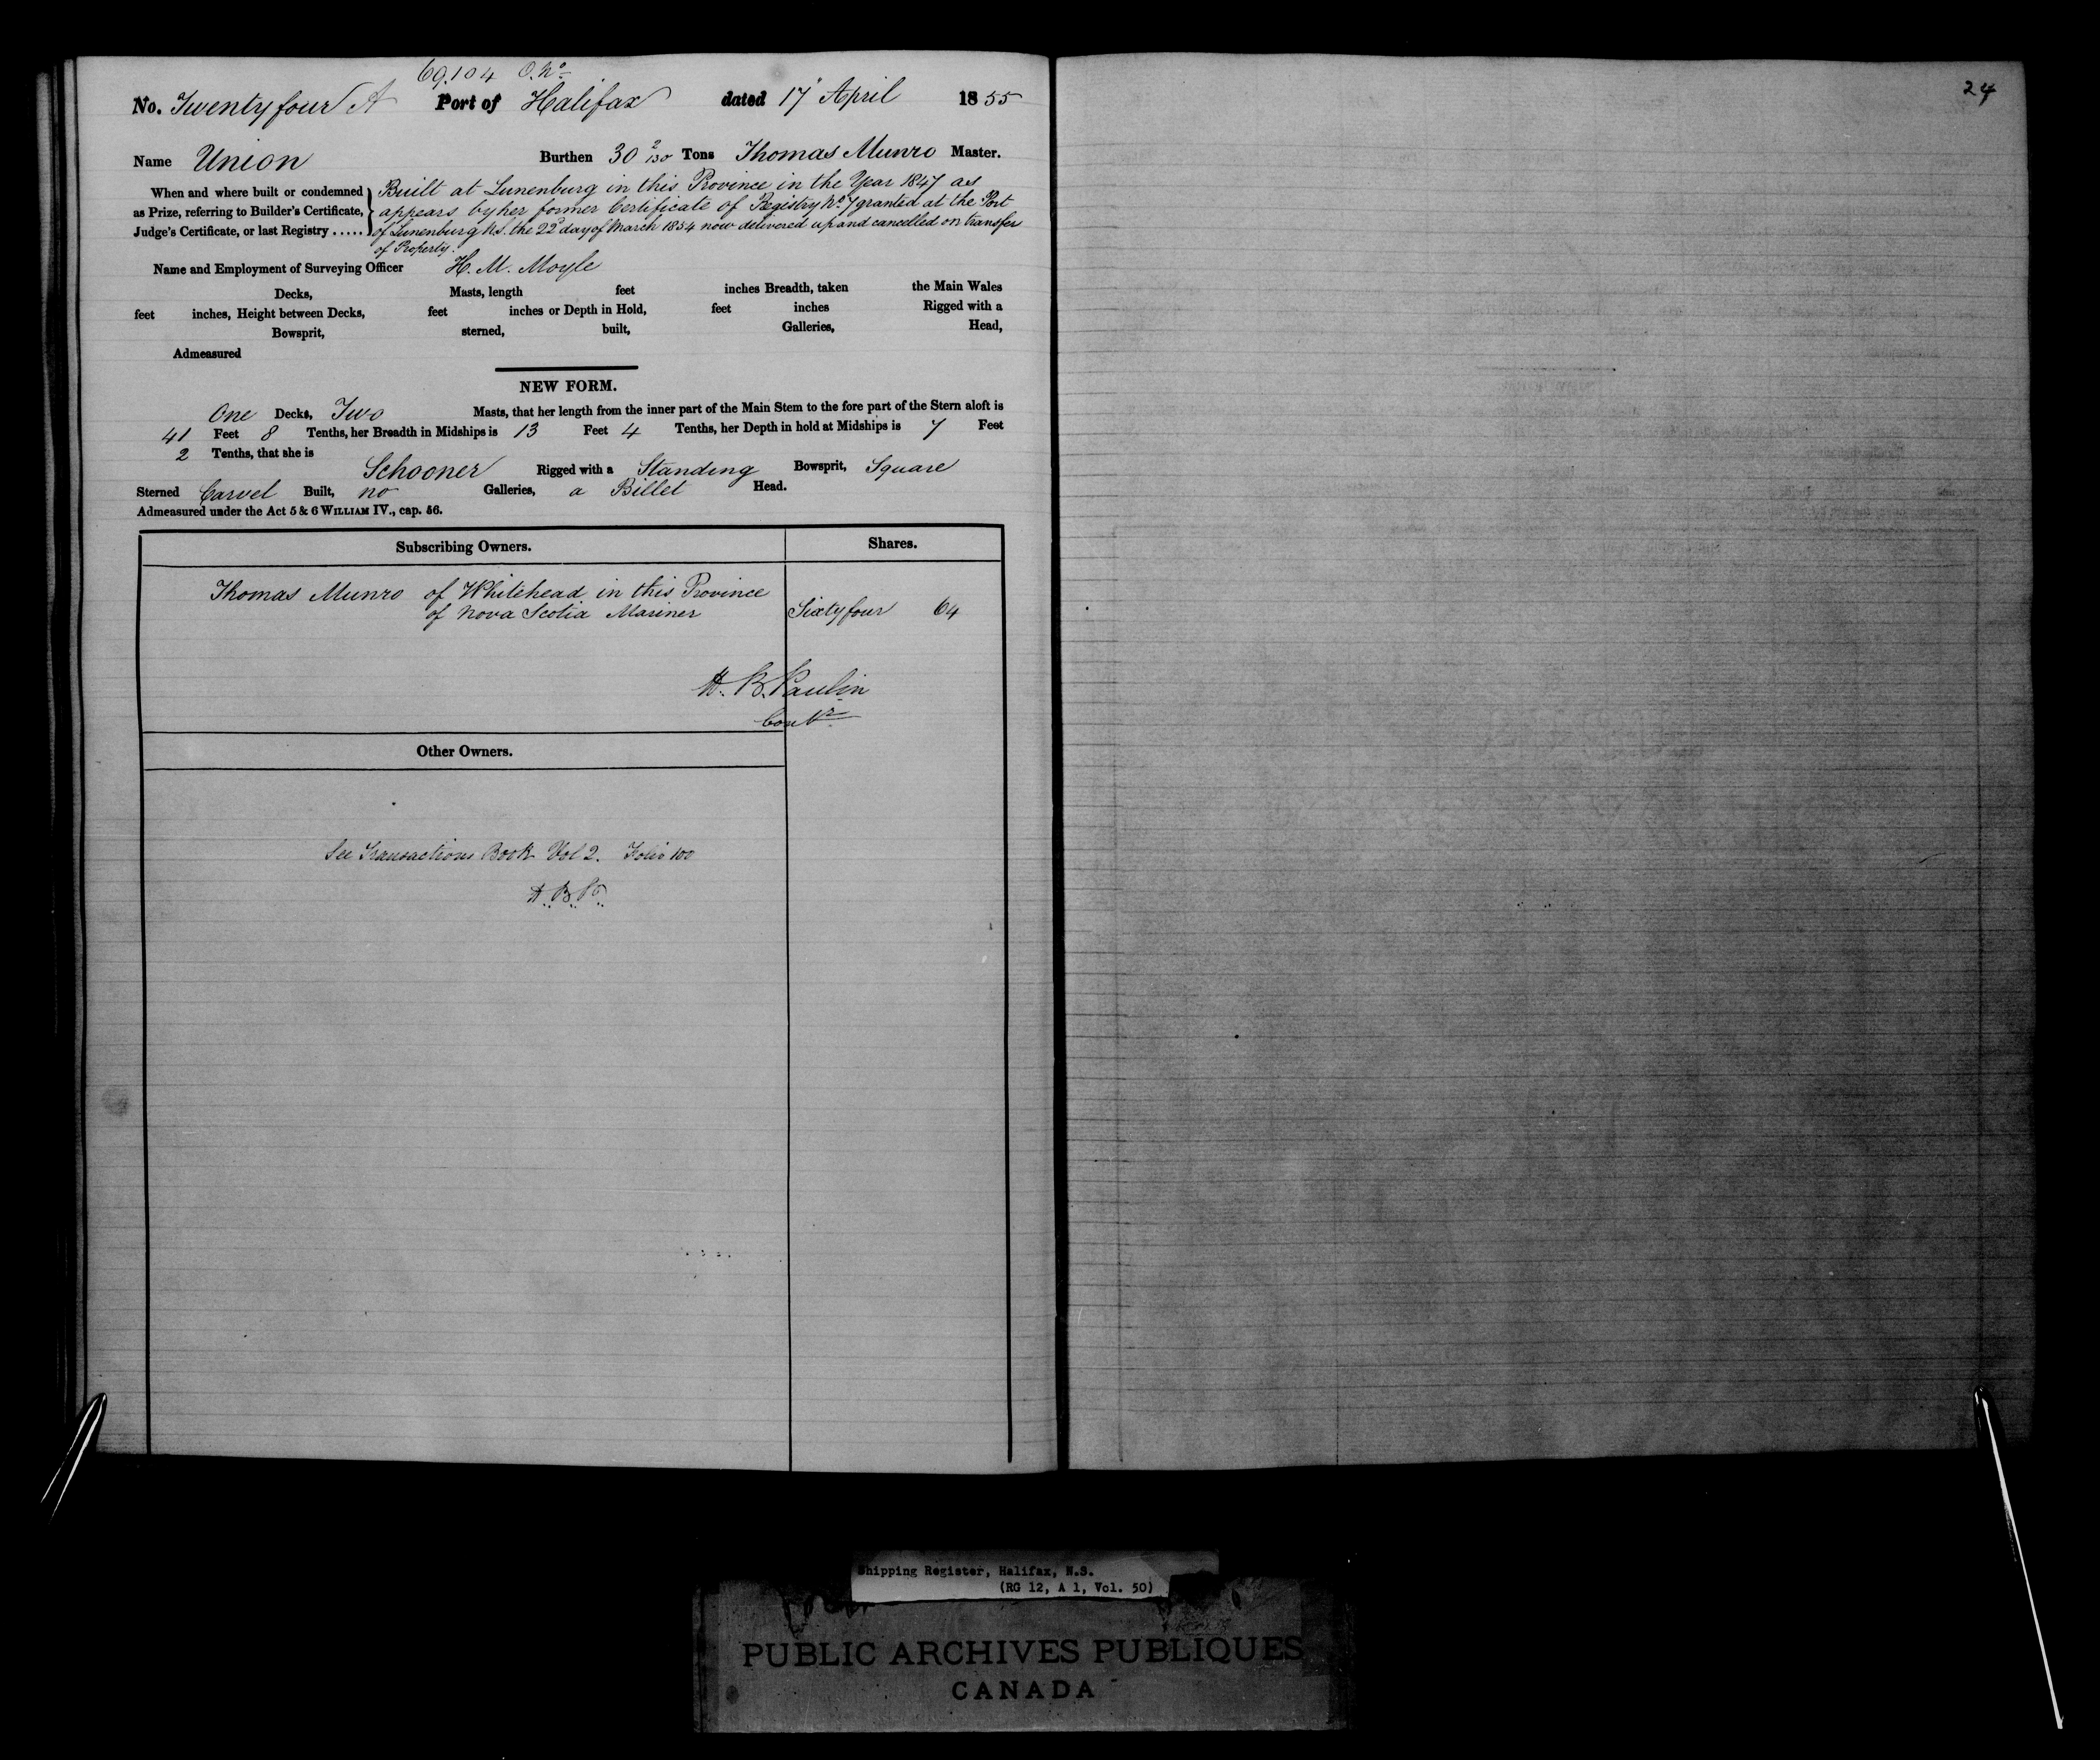 69.104 O. No
No. Twenty four A Port of Halifax dated 17 April 1855
Name Union Burthen 30 2/130 Tons Thomas Munro Master.
When and where built or condemned as Prize, referring to Builder's Certificate, Judge's Certificate, or last Registry .....
Built at Lunenburg in this Province in the Year 1847 as
appears by her former Certificate of Registry No. 7 granted at the Port
of Lunenburg N.S. the 22d day of March 1854 now delivered up and cancelled on transfer
of Property.
Name and Employment of Surveying Officer H. M. Moyle
Decks, Masts, length feet inches Breadth, taken the Main Wales
feet inches, Height between Decks, feet inches or Depth in Hold, feet inches Rigged with a
Bowsprit, sterned, built, Galleries, Head,
Admeasured
NEW FORM.
One Decks, Two Masts, that her length from the inner part of the Main Stem to the fore part of the Stern aloft is
41 Feet 8 Tenths, her Breadth in Midships is 13 Feet 4 Tenths, her Depth in hold at Midships is 7 Feet
2 Tenths, that she is
Schooner Rigged with a Standing Bowsprit, Square
Sterned Carvel Built, no Galleries, a Billet Head.
Admeasured under the Act 5 & 6 WILLIAM IV., cap. 56.
Subscribing Owners. Shares.
Thomas Munro of Whitehead in this Province
of Nova Scotia Mariner Sixty four 64
H. B. Paulin
Contr
Other Owners.
See Transactions Book Vol 2. Folio 100
H. B. P.
24
Shipping Register, Halifax, N.S.
(RG 12, A 1, Vol. 50)
PUBLIC ARCHIVES PUBLIQUES
CANADA